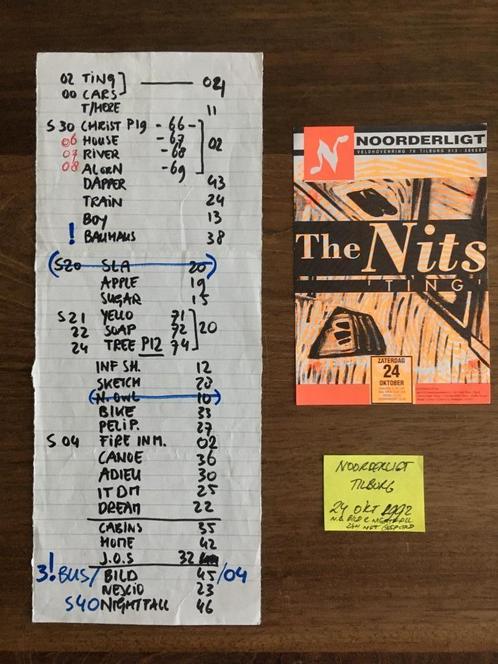 02 TING ] 02
00 CARS
T/HERE 11
S 30 CHRIST PIG - 66 -
06 HOUSE - 67
07 RIVER - 68 02
08 ALGON - 69
DAPPER 43
TRAIN 24
BOY 13
! BAUHAUS 38
(S20 SLA 20)
APPLE 19
SUGAR 15
S 21 YELLO 71
22 SOAP 72 20
24 TREE P12 74
INF SH. 12
SKETCH 20
(N. OWL 10)
BIKE 33
PELIP. 27
S 04 FIRE IN M. 02
CANOE 36
ADIEU 30
IT DM 25
DREAM 22
CABINS 35
HOME 42
J.O.S 32
3! BUS/ BILD 45/04
NESCIO 23
S40 NIGHTFALL 46
N NOORDERLIGT
The Nits
'TING'
ZATERDAG
24
OKTOBER
NOORDERLIGT
TILBURG
24 OKT 1992
N.B. BILD & NIGHTFALL
ZIJN NIET GESPEELD